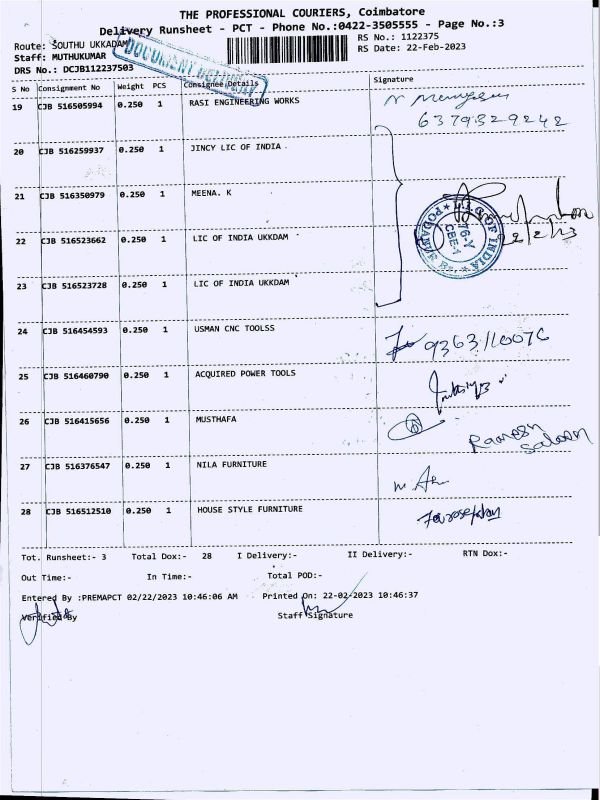 THE PROFESSIONAL COURIERS, Coimbatore
Delivery Runsheet - PCT - Phone No.:0422-3505555 - Page No.:3
Route: SOUTHU UKKADAM
RS No.: 1122375
Staff: MUTHUKUMAR
RS Date: 22-Feb-2023
DRS No.: DCJB112237503
DOCUMENT DELIVERY
S No Consignment No Weight PCS Consignee Details Signature
19 CJB 516505994 0.250 1 RASI ENGINEERING WORKS
6379329242
20 CJB 516259937 0.250 1 JINCY LIC OF INDIA
21 CJB 516350979 0.250 1 MEENA. K
22 CJB 516523662 0.250 1 LIC OF INDIA UKKDAM
23 CJB 516523728 0.250 1 LIC OF INDIA UKKDAM
24 CJB 516454593 0.250 1 USMAN CNC TOOLSS 9363110076
25 CJB 516460790 0.250 1 ACQUIRED POWER TOOLS
26 CJB 516415656 0.250 1 MUSTHAFA Ramesh
27 CJB 516376547 0.250 1 NILA FURNITURE
28 CJB 516512510 0.250 1 HOUSE STYLE FURNITURE
Tot. Runsheet:- 3 Total Dox:- 28 I Delivery:- II Delivery:- RTN Dox:-
Out Time:- In Time:- Total POD:-
Entered By :PREMAPCT 02/22/2023 10:46:06 AM Printed On: 22-02-2023 10:46:37
Verified By Staff Signature